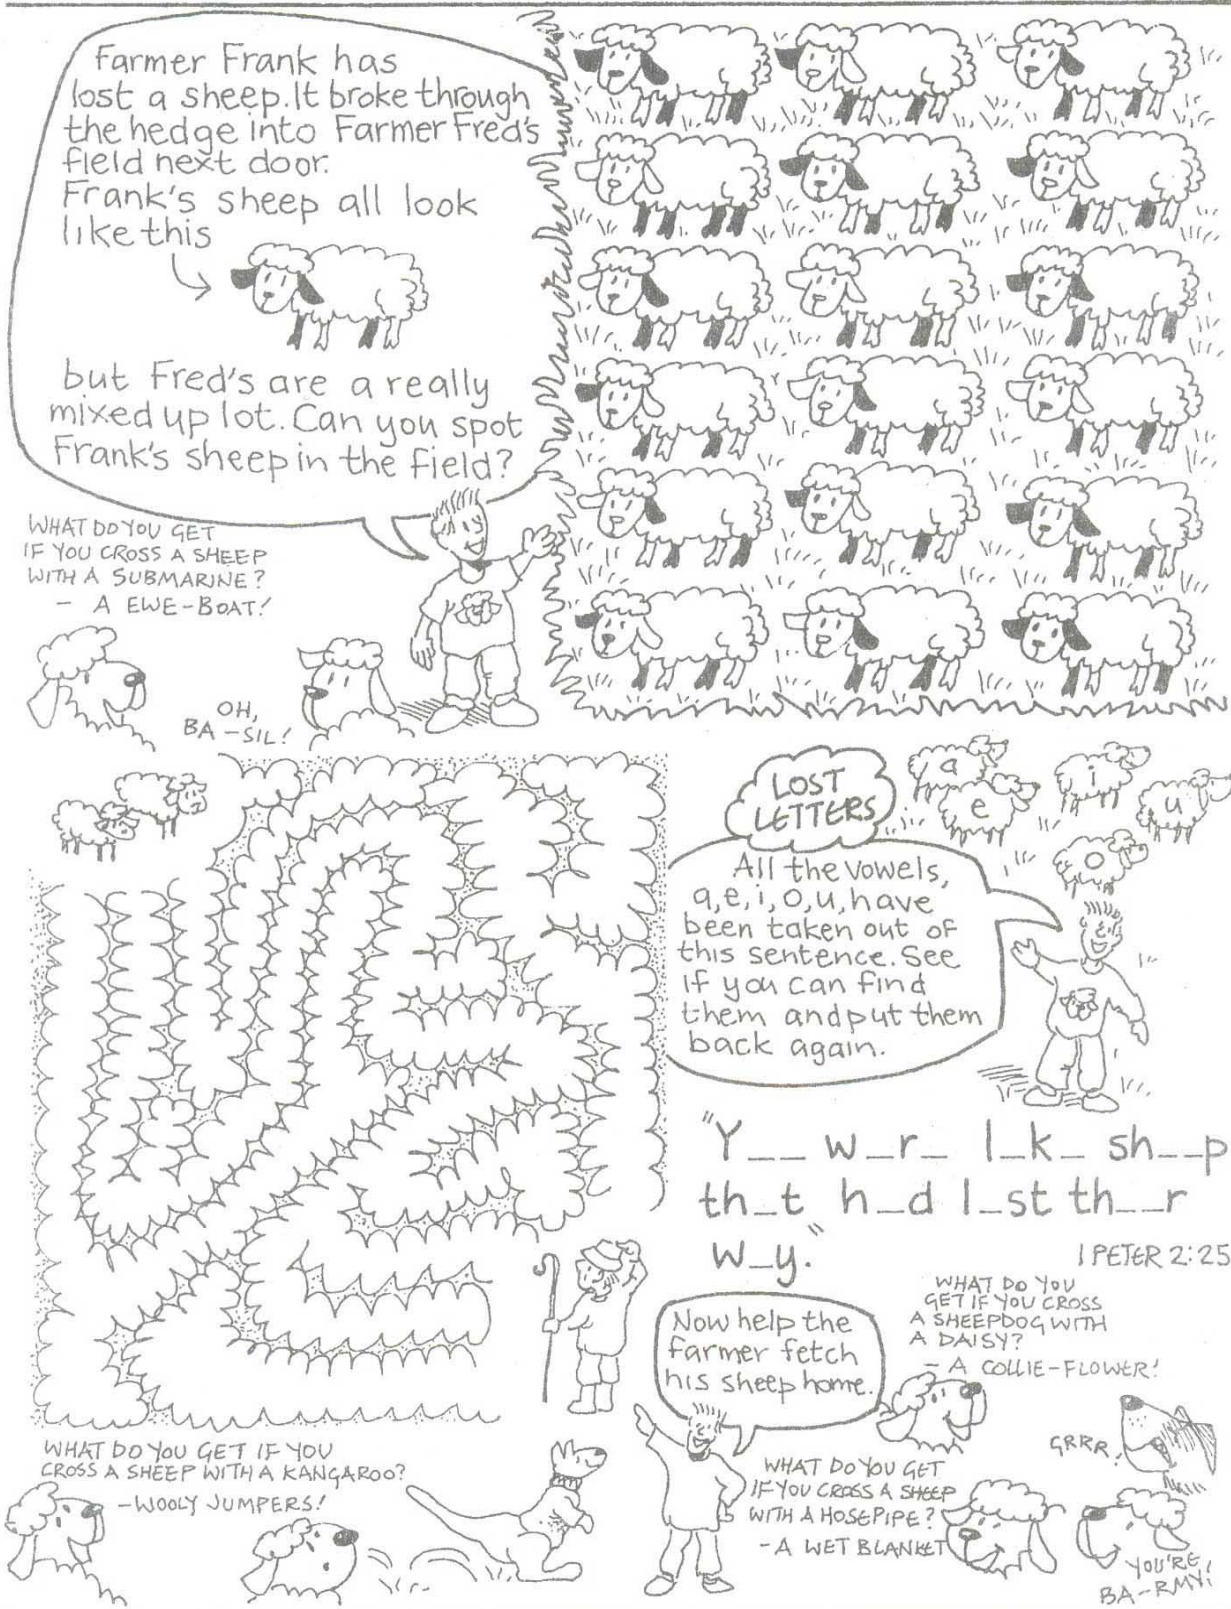 Farmer Frank has
lost a sheep. It broke through
the hedge into Farmer Fred's
field next door.
Frank's sheep all look
like this
but Fred's are a really
mixed up lot. Can you spot
Frank's sheep in the field?
WHAT DO YOU GET
IF YOU CROSS A SHEEP
WITH A SUBMARINE?
- A EWE-BOAT!
OH,
BA-SIL!
LOST
LETTERS
a
e
i
u
o
All the vowels,
a,e,i,o,u, have
been taken out of
this sentence. See
if you can find
them and put them
back again.
"Y__ w_r_ l_k_ sh__p
th_t h_d l_st th__r
w_y."
1 PETER 2:25
Now help the
farmer fetch
his sheep home.
WHAT DO YOU
GET IF YOU CROSS
A SHEEPDOG WITH
A DAISY?
- A COLLIE-FLOWER!
GRRR!
WHAT DO YOU GET IF YOU
CROSS A SHEEP WITH A KANGAROO?
- WOOLY JUMPERS!
WHAT DO YOU GET
IF YOU CROSS A SHEEP
WITH A HOSEPIPE?
- A WET BLANKET
YOU'RE
BA-RMY!